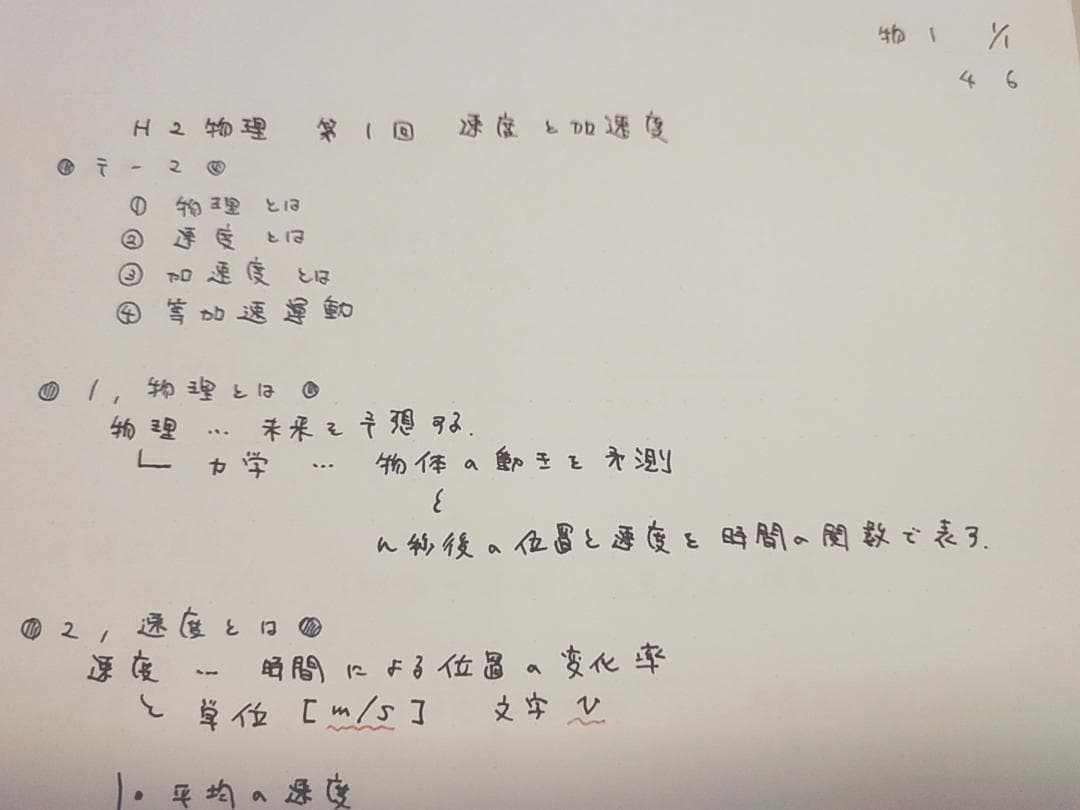 物1 1/1
4 6
H2物理 第1回 速度と加速度
テーマ
① 物理とは
② 速度とは
③ 加速度とは
④ 等加速運動
1, 物理とは
物理 … 未来を予想する.
力学 … 物体の動きを予測
n秒後の位置と速度を時間の関数で表す.
2, 速度とは
速度 … 時間による位置の変化率
単位 [m/s] 文字 v
・平均の速度